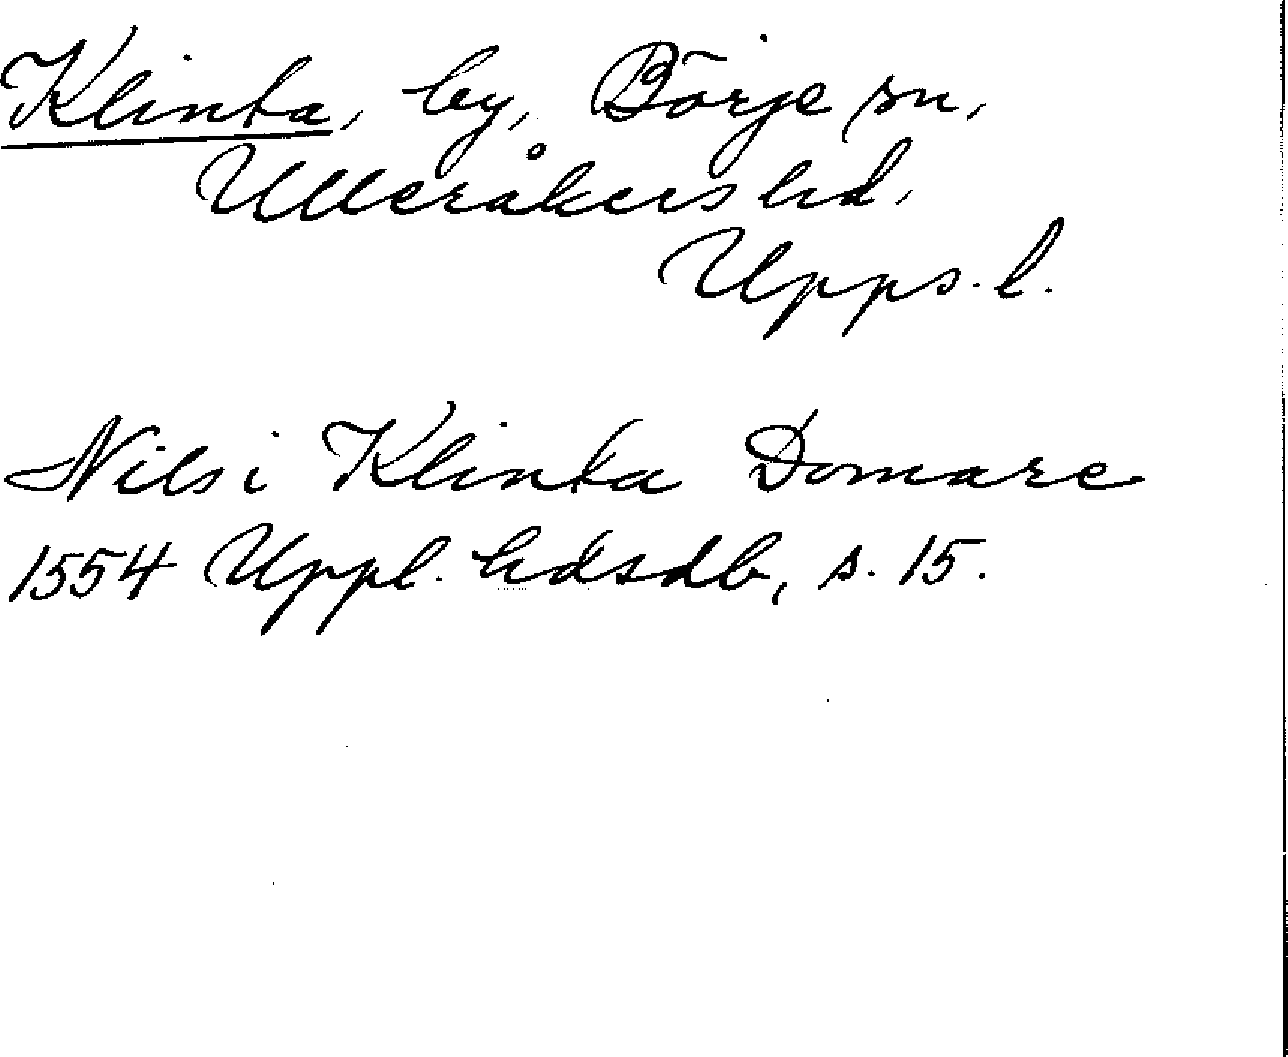 Klinta, by, Börje sn,
Ulleråkers hd,
Upps. l.
Nils i Klinta Domare
1554 Uppl. hdsdb, s. 15.